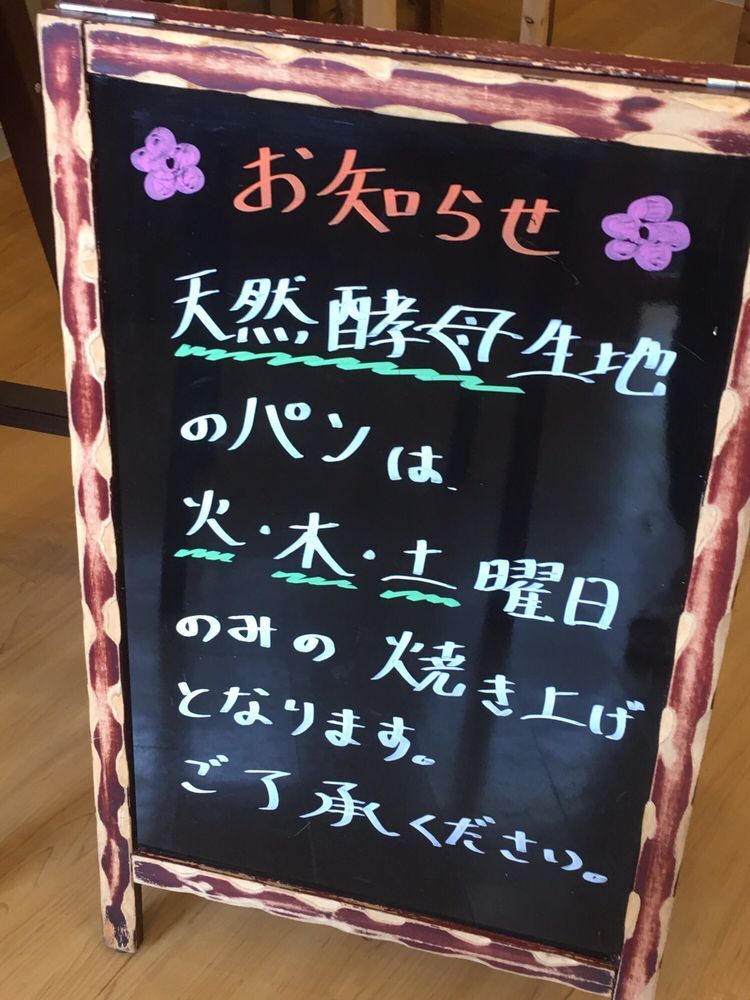 お知らせ
天然酵母生地
のパンは
火・木・土曜日
のみの焼き上げ
となります。
ご了承ください。